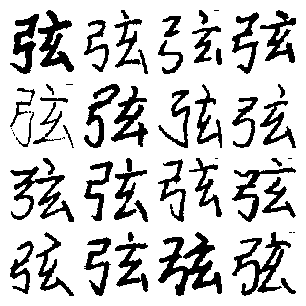 弦弦弦弦
弦弦弦弦
弦弦弦弦
弦弦弦弦